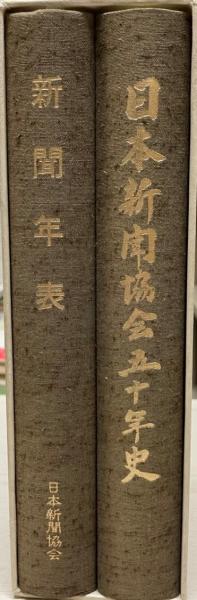 日本新聞協会五十年史
新聞年表
日本新聞協会